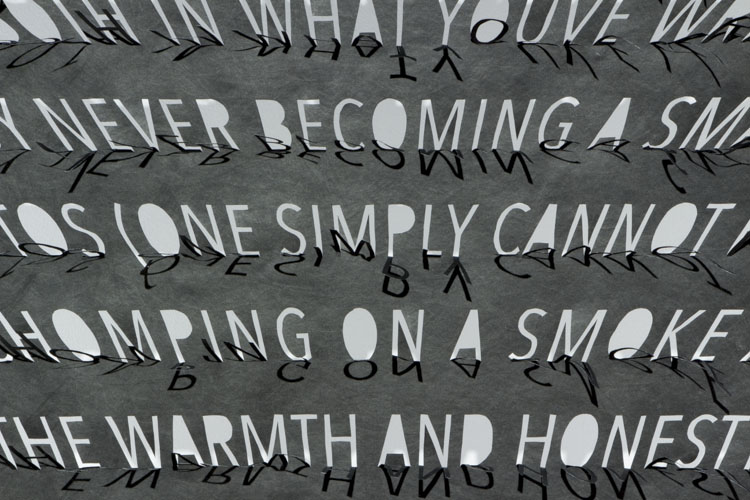 OTH IN WHAT YOUVE WA
Y NEVER BECOMING A SM
TOS (ONE SIMPLY CANNOT
HOMPING ON A SMOKE
THE WARMTH AND HONEST